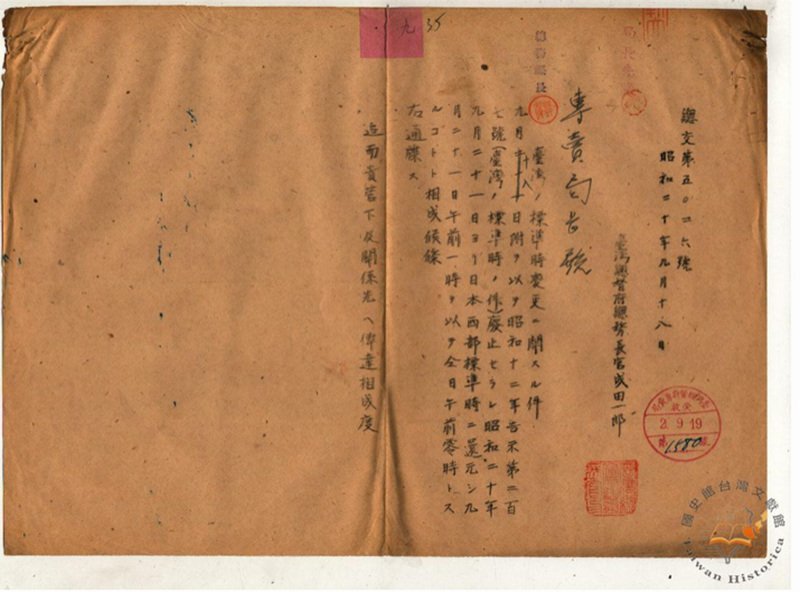 九 35
總交第五〇二六號
昭和二十年九月十八日
臺灣總督府總務長官成田一郎
專賣局長殿
臺灣ノ標準時變更ニ關スル件
九月十八日附ヲ以テ昭和十二年告示第二百
七號(臺灣ノ標準時ノ件)廢止セラレ昭和二十年
九月二十一日ヨリ日本西部標準時ニ還元シ九
月二十一日午前一時ヲ以テ全日午前零時トス
ルコトト相成候條
右通牒ス
追而貴管下及關係先ヘ傳達相成度
總務課長
2.9.19
第1580號
國史館台灣文獻館
Taiwan Historica